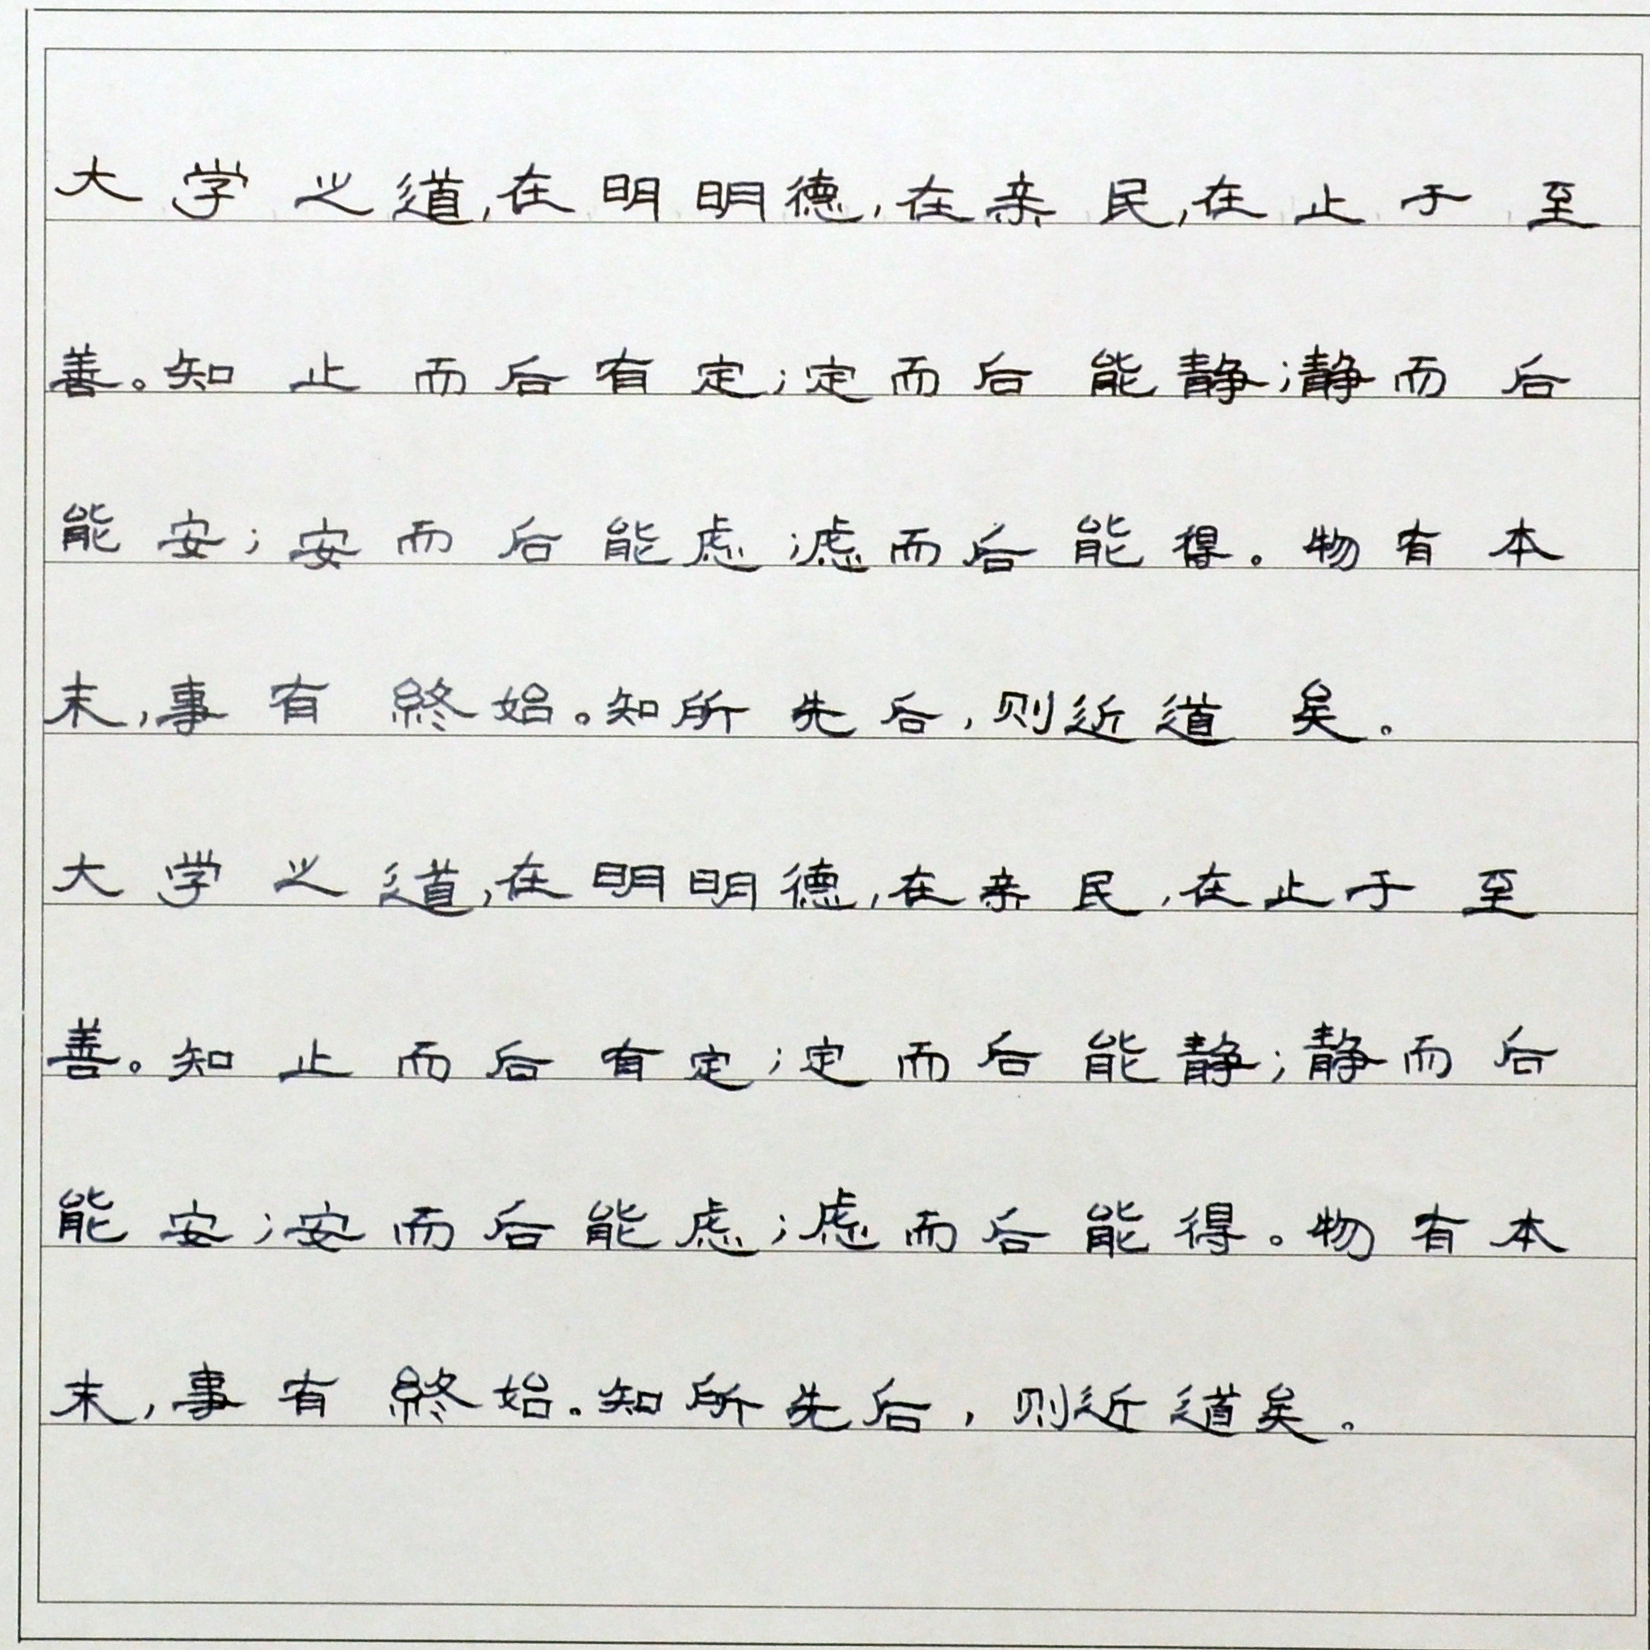 大学之道,在明明德,在亲民,在止于至
善。知止而后有定;定而后能静;静而后
能安;安而后能虑;虑而后能得。物有本
末,事有終始。知所先后,则近道矣。
大学之道,在明明德,在亲民,在止于至
善。知止而后有定;定而后能静;静而后
能安;安而后能虑;虑而后能得。物有本
末,事有終始。知所先后,则近道矣。